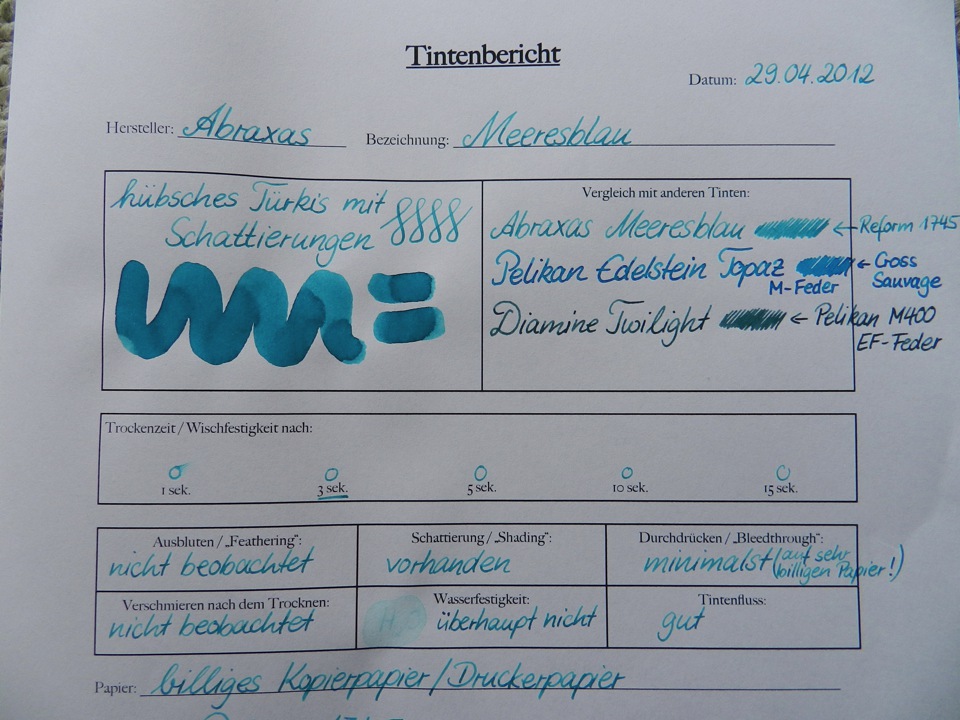 Tintenbericht
Datum: 29.04.2012
Hersteller: Abraxas Bezeichnung: Meeresblau
hübsches Türkis mit
Schattierungen
Vergleich mit anderen Tinten:
Abraxas Meeresblau ← Reform 1745
Pelikan Edelstein Topaz ← Cross
M-Feder Sauvage
Diamine Twilight ← Pelikan M400
EF-Feder
Trockenzeit / Wischfestigkeit nach:
1 sek. 3 sek. 5 sek. 10 sek. 15 sek.
Ausbluten / „Feathering“: Schattierung / „Shading“: Durchdrücken / „Bleedthrough“:
nicht beobachtet vorhanden minimalst (auf sehr
billigen Papier!)
Verschmieren nach dem Trocknen: Wasserfestigkeit: Tintenfluss:
nicht beobachtet H₂O überhaupt nicht gut
Papier: billiges Kopierpapier/Druckerpapier